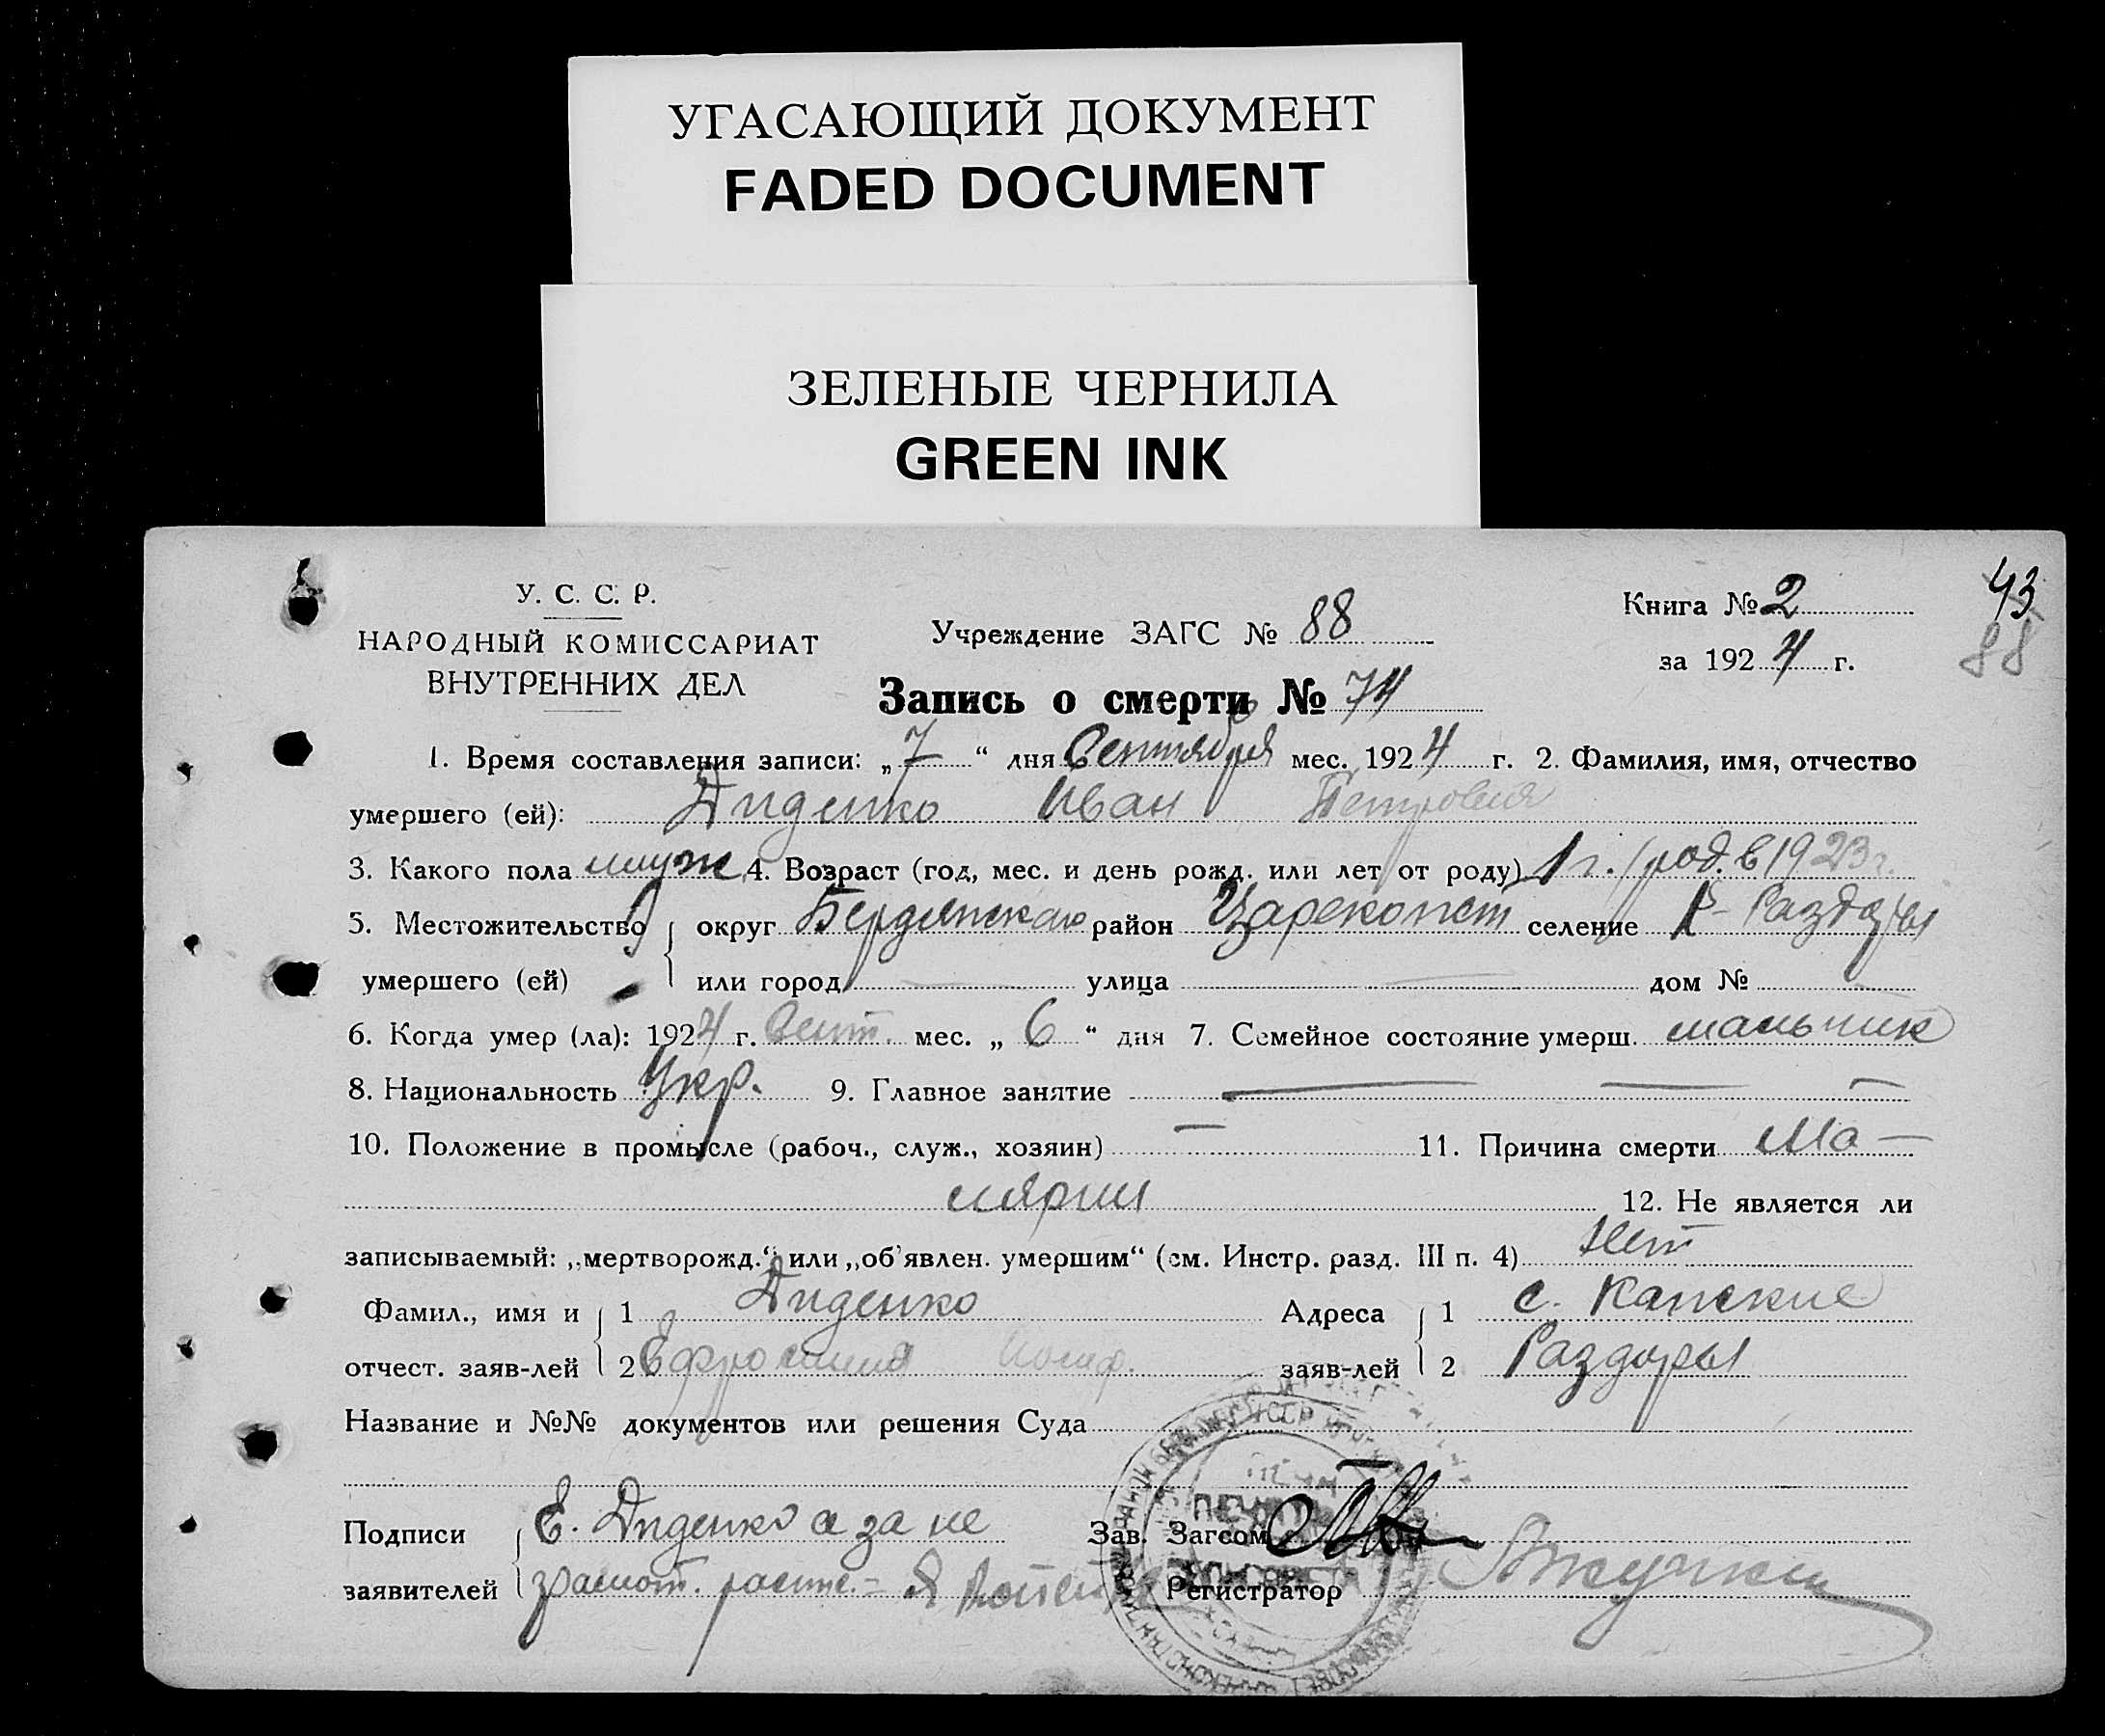 УГАСАЮЩИЙ ДОКУМЕНТ
FADED DOCUMENT
ЗЕЛЕНЫЕ ЧЕРНИЛА
GREEN INK
У. С. С. Р.
НАРОДНЫЙ КОМИССАРИАТ
ВНУТРЕННИХ ДЕЛ
Учреждение ЗАГС № 88
Запись о смерти № 74
Книга № 2
за 1924 г.
43
88
1. Время составления записи: „7“ дня Сентября мес. 1924 г. 2. Фамилия, имя, отчество
умершего (ей): Диденко Иван Петрович
3. Какого пола муж 4. Возраст (год, мес. и день рожд. или лет от роду) 1 г. /род. в 1923 г.
5. Местожительство округ Бердянская район Царекопст селение К-Раздоры
умершего (ей) или город улица дом №
6. Когда умер (ла): 1924 г. Сент. мес. „6“ дня 7. Семейное состояние умерш. мальчик
8. Национальность Укр. 9. Главное занятие —
10. Положение в промысле (рабоч., служ., хозяин) — 11. Причина смерти Ма-
лярия 12. Не является ли
записываемый: „мертворожд.“ или „об'явлен. умершим“ (см. Инстр. разд. III п. 4) Нет
Фамил., имя и 1 Диденко Адреса 1 с. Капские
отчест. заяв-лей 2 Ефросиния Иосиф. заяв-лей 2 Раздоры
Название и №№ документов или решения Суда
Подписи Е. Диденко а за не Зав. Загсом
заявителей грамот. распис. - Я Регистратор